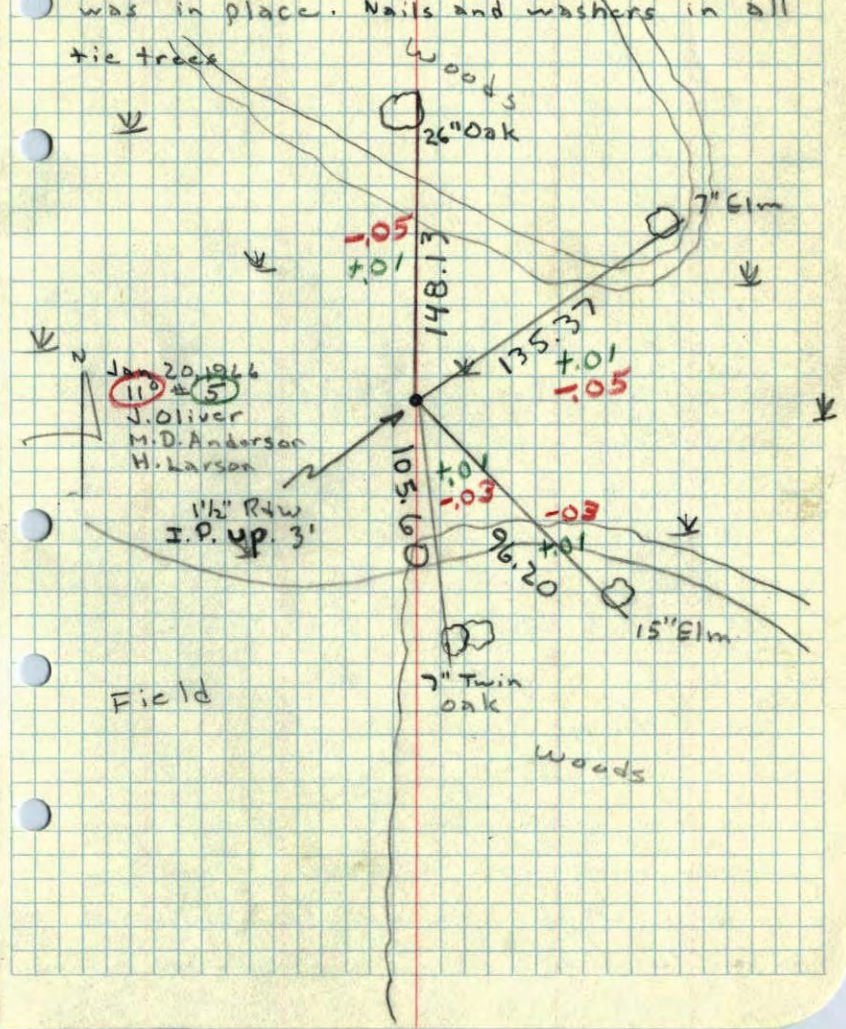 was in place. Nails and washers in all
tie trees
Woods
26" Oak
7" Elm
-.05
+.01
148.13
135.37
+.01
-.05
N
Jan 20, 1966
11° # 5
J. Oliver
M.D. Anderson
H. Larson
1½" R+W
I.P. up .3'
105.60
+.01
-.03
-.03
+.01
96.20
15" Elm
7" Twin
oak
Field
Woods